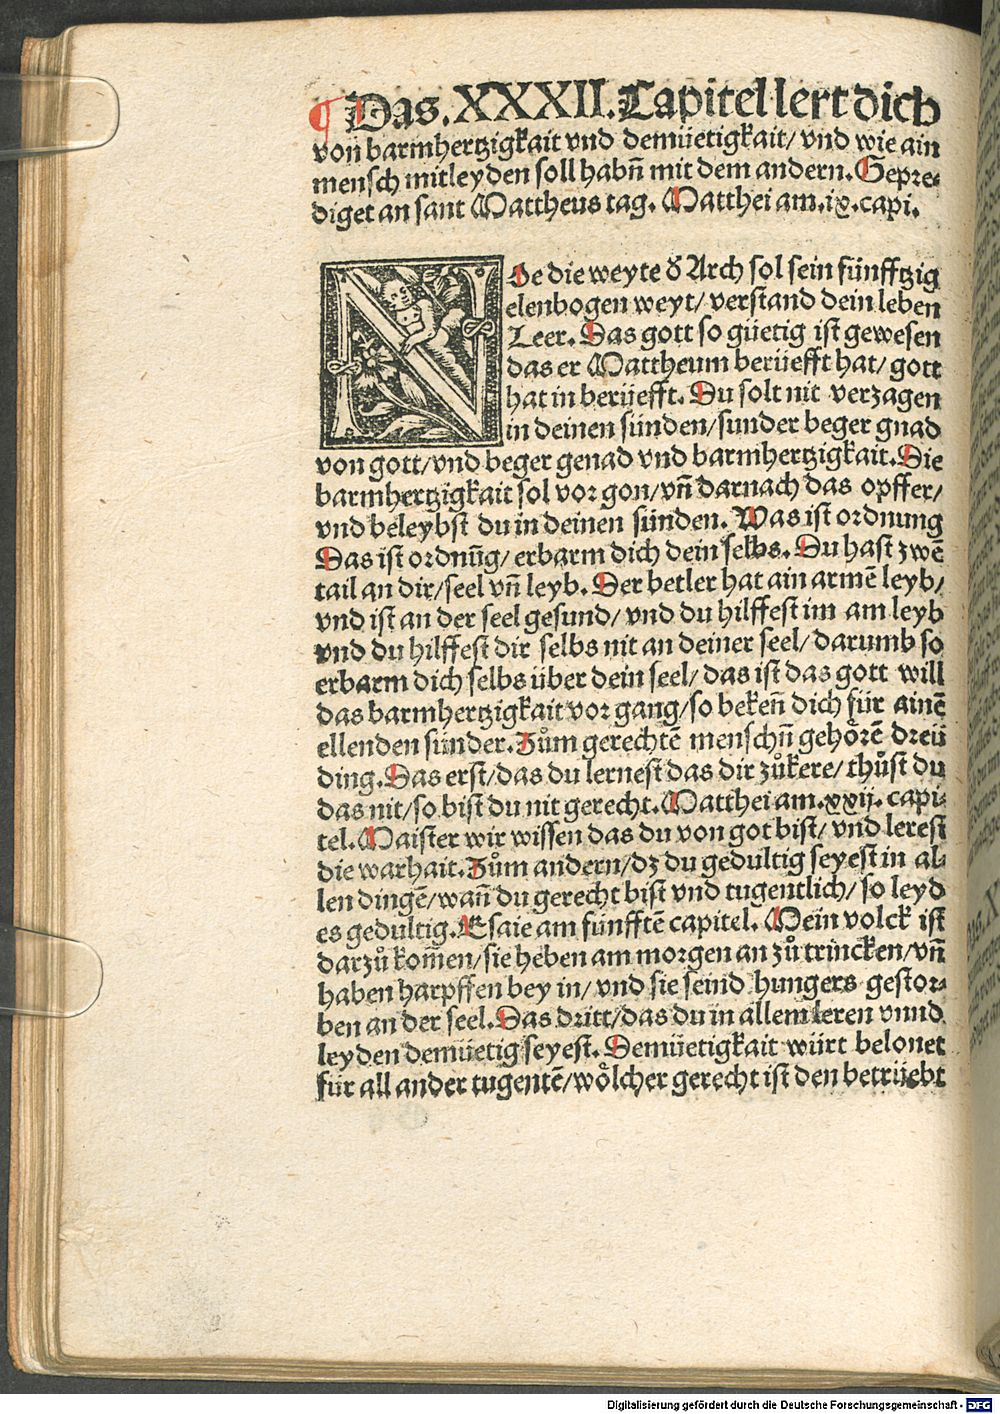 ¶ Das. XXXII. Capitel lert dich
von barmhertzigkait vnd demüetigkait/ vnd wie ain
mensch mitleyden soll habñ mit dem andern. Gepre⸗
diget an sant Mattheus tag. Matthei am. ix. capi.
NDe die weyte d̕ Arch sol sein fünfftzig
elenbogen weyt/ verstand dein leben
Leer. Das gott so güetig ist gewesen
das er Mattheum berüefft hat/ gott
hat in berüefft. Du solt nit verzagen
in deinen sünden/ sunder beger gnad
von gott/ vnd beger genad vnd barmhertzigkait. Die
barmhertzigkait sol vor gon/ vñ darnach das opffer/
vnd beleybst du in deinen sünden. Was ist ordnung
Das ist ordnũg/ erbarm dich dein selbs. Du hast zwē
tail an dir/ seel vñ leyb. Der betler hat ain armē leyb/
vnd ist an der seel gesund/ vnd du hilffest im am leyb
vnd du hilffest dir selbs nit an deiner seel/ darumb so
erbarm dich selbs über dein seel/ das ist das gott will
das barmhertzigkait vor gang/ so bekeñ dich für ainē
ellenden sünder. Zům gerechtē menschñ gehörē dreü
ding. Das erst/ das du lernest das dir zůkere/ thůst du
das nit/ so bist du nit gerecht. Matthei am. xxij. capi⸗
tel. Maister wir wissen das du von got bist/ vnd lerest
die warhait. Zům andern/ dz du gedultig seyest in al⸗
len dingē/ wañ du gerecht bist vnd tugentlich/ so leyd
es gedultig. Esaie am fünfftē capitel. Mein volck ist
darzů kom̄en/ sie heben am morgen an zů trincken/ vñ
haben harpffen bey in/ vnd sie seind hungers gestor⸗
ben an der seel. Das dritt/ das du in allem leren vnnd
leyden demüetig seyest. Demüetigkait würt belonet
für all ander tugentē/ wölcher gerecht ist den betrüebt
Digitalisierung gefördert durch die Deutsche Forschungsgemeinschaft - DFG